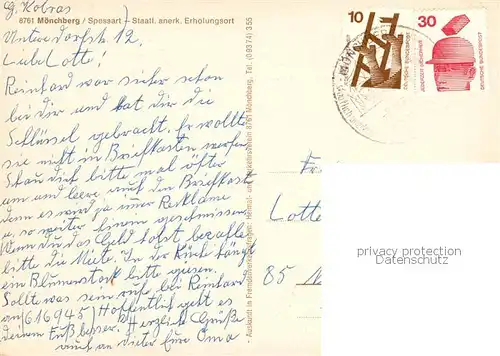 G. Kobras
8761 Mönchberg / Spessart – Staatl. anerk. Erholungsort
Unterdorfstr. 12.
Liebe Lotte!
Reinhard war sicher schon
bei dir und hat dir die
Schlüssel gebracht. Er wollte
sie nicht in Briefkasten werfen
Schau dich bitte mal öfter
um und leere auch den Briefkast
denn es wird ja immer Reklame
u. so weiter einem geschmissen
Wenn du das Geld holst bezahle
bitte die Miete. In der Küche hängt
ein Blumenstock bitte giesen.
Sollte was sein rufe bei Reinhard
an (616945) Hoffentlich geht es
deinem Fuß besser. Herzliche Grüße
auch an Dieter Eure Oma
Tel. (0 93 74) 355
8761 Mönchberg,
10
30
DEUTSCHE BUNDESPOST
DEUTSCHE BUNDESPOST
Fr
Lotte
85
privacy protection
Datenschutz